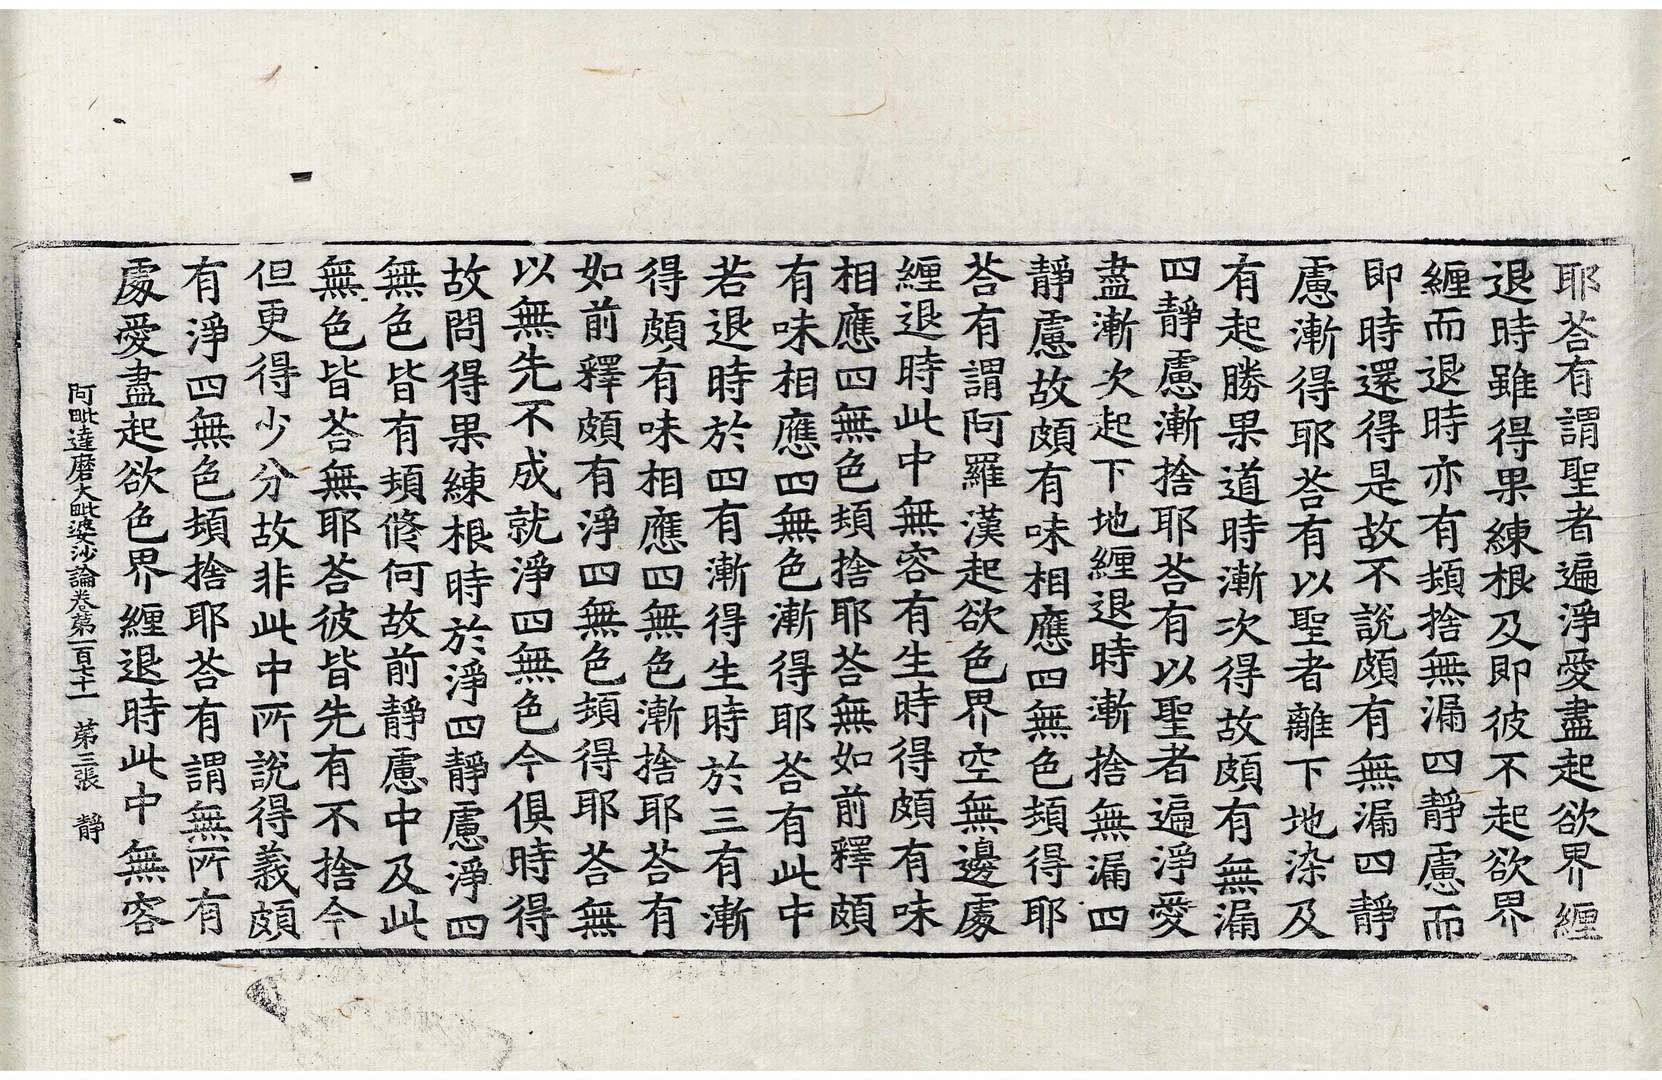 耶荅有謂聖者遍淨愛盡起欲界纏
退時雖得果練根及即彼不起欲界
纏而退時亦有頓捨無漏四靜慮而
即時還得是故不說頗有無漏四靜
慮漸得耶荅有以聖者離下地染及
有起勝果道時漸次得故頗有無漏
四靜慮漸捨耶荅有以聖者遍淨愛
盡漸次起下地纏退時漸捨無漏四
靜慮故頗有味相應四無色頓得耶
荅有謂阿羅漢起欲色界空無邊處
纏退時此中無容有生時得頗有味
相應四無色頓捨耶荅無如前釋頗
有味相應四無色漸得耶荅有此中
若退時於四有漸得生時於三有漸
得頗有味相應四無色漸捨耶荅有
如前釋頗有淨四無色頓得耶荅無
以無先不成就淨四無色今俱時得
故問得果練根時於淨四靜慮淨四
無色皆有頓修何故前靜慮中及此
無色皆荅無耶荅彼皆先有不捨今
但更得少分故非此中所說得義頗
有淨四無色頓捨耶荅有謂無所有
處愛盡起欲色界纏退時此中無容
阿毗達磨大毗婆沙論卷第一百七十一　第三張　靜